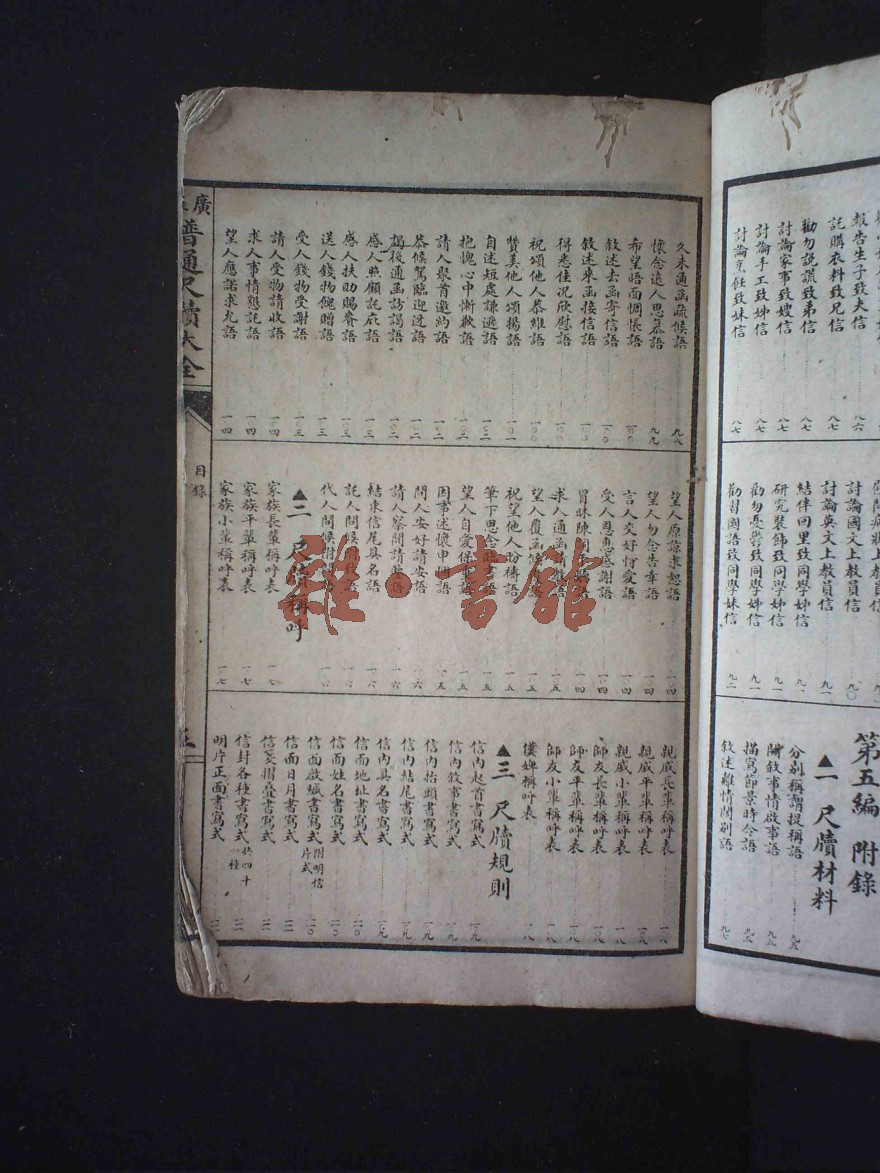 報告生子致夫信 八六
託購衣料致兄信 八七
勸勿說謊致弟信 八七
討論家事致嫂信 八七
討論手工致姊信 八七
討論烹飪致妹信 八七
討論國文上教員信 九〇
討論英文上教員信 九一
結伴回里致同學姊信 九一
研究裝飾致同學姊信 九一
勸勿憂鬱致同學姊信 九一
勸習國語致同學妹信 九二
第五編 附錄
▲一 尺牘材料
分別稱謂提稱語
開敘事情啟事語
描寫節景時令語
敘述離情闊別語 九七
久未通函疏候語 九八
懷念遠人思慕語 九九
希望晤面惆悵語 一〇〇
敘述去函寄信語 一〇〇
敘述來函接信語 一〇〇
得悉佳况欣慰語 一〇〇
祝頌他人恭維語 一〇〇
贊美他人頌揚語 一〇一
自述短處謙遜語 一〇一
抱愧心中慚歉語 一〇二
請人聚首邀約語 一〇二
恭候駕臨迎迓語 一〇二
謁後通函訪謁語 一〇二
感人照顧託庇語 一〇三
感人扶助賜賚語 一〇三
送人錢物餽贈語 一〇三
受人錢物受謝語 一〇三
請人受物請收語 一〇四
求人事情懇託語 一〇四
望人應諾求允語 一〇四
望人原諒求恕語 一〇四
望人勿念告幸語 一〇四
言人交好忻愛語 一〇四
受人恩惠感謝語 一〇四
冒昧陳 語 一〇四
求人通函 語 一〇五
望人覆函 語 一〇五
祝望他人盼禱語 一〇五
筆下思念 語 一〇五
望人自愛保重語 一〇五
因事述懷申悃語 一〇五
問人安好請安語 一〇六
請人察閱請鑒語 一〇六
結束信尾具名語 一〇六
託人問候 語 一〇六
代人問候附 一〇六
▲二 尺牘稱呼
家族長輩稱呼表 一〇七
家族平輩稱呼表 一〇七
家族小輩稱呼表 一〇七
親戚長輩稱呼表 一〇八
親戚平輩稱呼表 一〇八
親戚小輩稱呼表 一〇八
師友長輩稱呼表 一〇八
師友平輩稱呼表 一〇八
師友小輩稱呼表 一〇八
僕婢稱呼表 一〇八
▲三 尺牘規則
信內起首書寫式 一〇九
信內敘事書寫式 一〇九
信內抬頭書寫式 一〇九
信內結尾書寫式 一〇九
信內具名書寫式 一〇九
信面地址書寫式 一一〇
信面姓名書寫式 一一〇
信面啟緘書寫式 附明信片式 一一〇
信面日月書寫式 一一一
信箋摺疊書寫式 一一一
信封各種書寫式 共四十一種
明片正面書寫式
廣 普通尺牘大全
目錄
雜·書館